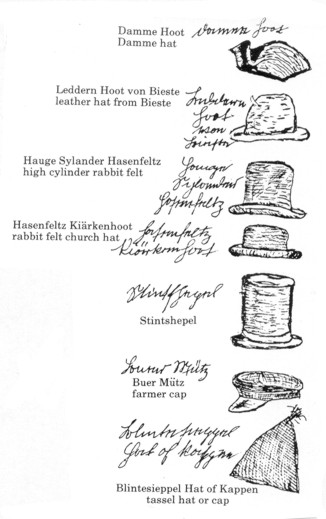 Damme Hoot Damme Hoot
Damme hat
Leddern Hoot von Bieste
leather hat from Bieste
Hoot
von
Hauge Sylander Hasenfeltz Hauge
high cylinder rabbit felt Sylander
Hasenfeltz
Hasenfeltz Kiärkenhoot Hasenfeltz
rabbit felt church hat Kiärkenhoot
Stintshepel
Buer Mütz
Buer Mütz
farmer cap
Hat of Kappen
Blintesieppel Hat of Kappen
tassel hat or cap